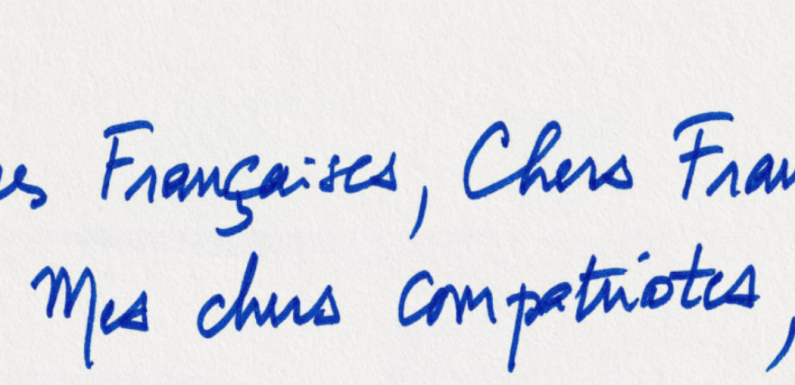 es Françaises, Chers Fran
Mes chers compatriotes,